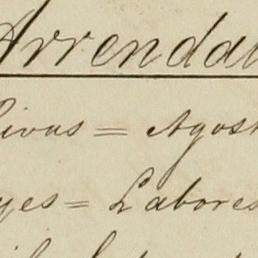 Arrendat
ivas = Agost
yes = Labores